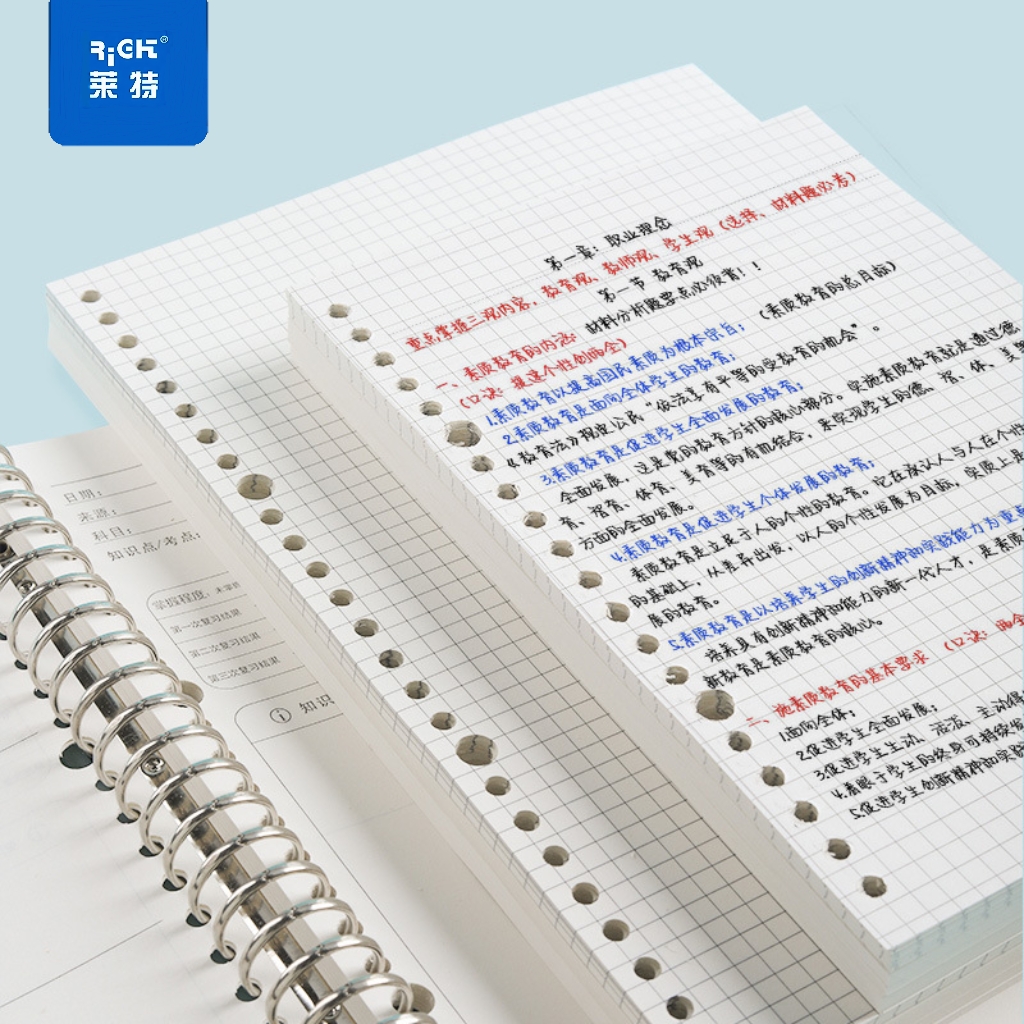 RiCH®
莱特
第一章：职业理念
重点掌握三观内容，教育观、教师观、学生观（选择、材料题必考）
第一节 教育观
一、素质教育的内涵：材料分析题要点必须背！！
（口诀：提这个性创西全）
1.素质教育以提高国民素质为根本宗旨；（素质教育的总目标）
2.素质教育是面向全体学生的教育；
《教育法》规定公民“依法享有平等的受教育的机会”。
3.素质教育是促进学生全面发展的教育；
全面发展，这是党的教育方针的核心部分。实施素质教育就是通过德
育、智育、体育、美育等的有机结合，来实现学生的德、智、体、美等
方面的全面发展。
4.素质教育是促进学生个体发展的教育；
素质教育是立足于人的个性的教育。它在承认人与人在个性
的基础上，从差异出发，以人的个性发展为目标，实质上是
展的教育。
5.素质教育是以培养学生的创新精神和实践能力为重要
培养具有创新精神和能力的新一代人才，是素质
新教育是素质教育的核心。
二、施素质教育的基本要求（口诀：
1.面向全体；
2.促进学生全面发展；
3.促进学生生动、活泼、主动
4.着眼于学生的终身可持续发
5.促进学生创新精神和实践
日期：
来源：
科目：
知识点/考点：
掌握程度：未掌握
第一次复习结果
第二次复习结果
第三次复习结果
知识